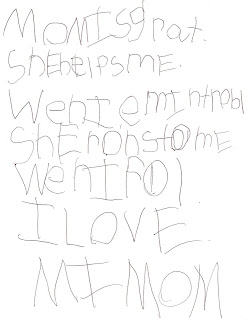 MOMISgrat.
SHEhelpsme.
WehIemintrobl
SHErohstome
WehIFOl
ILOVE.
MIMOM